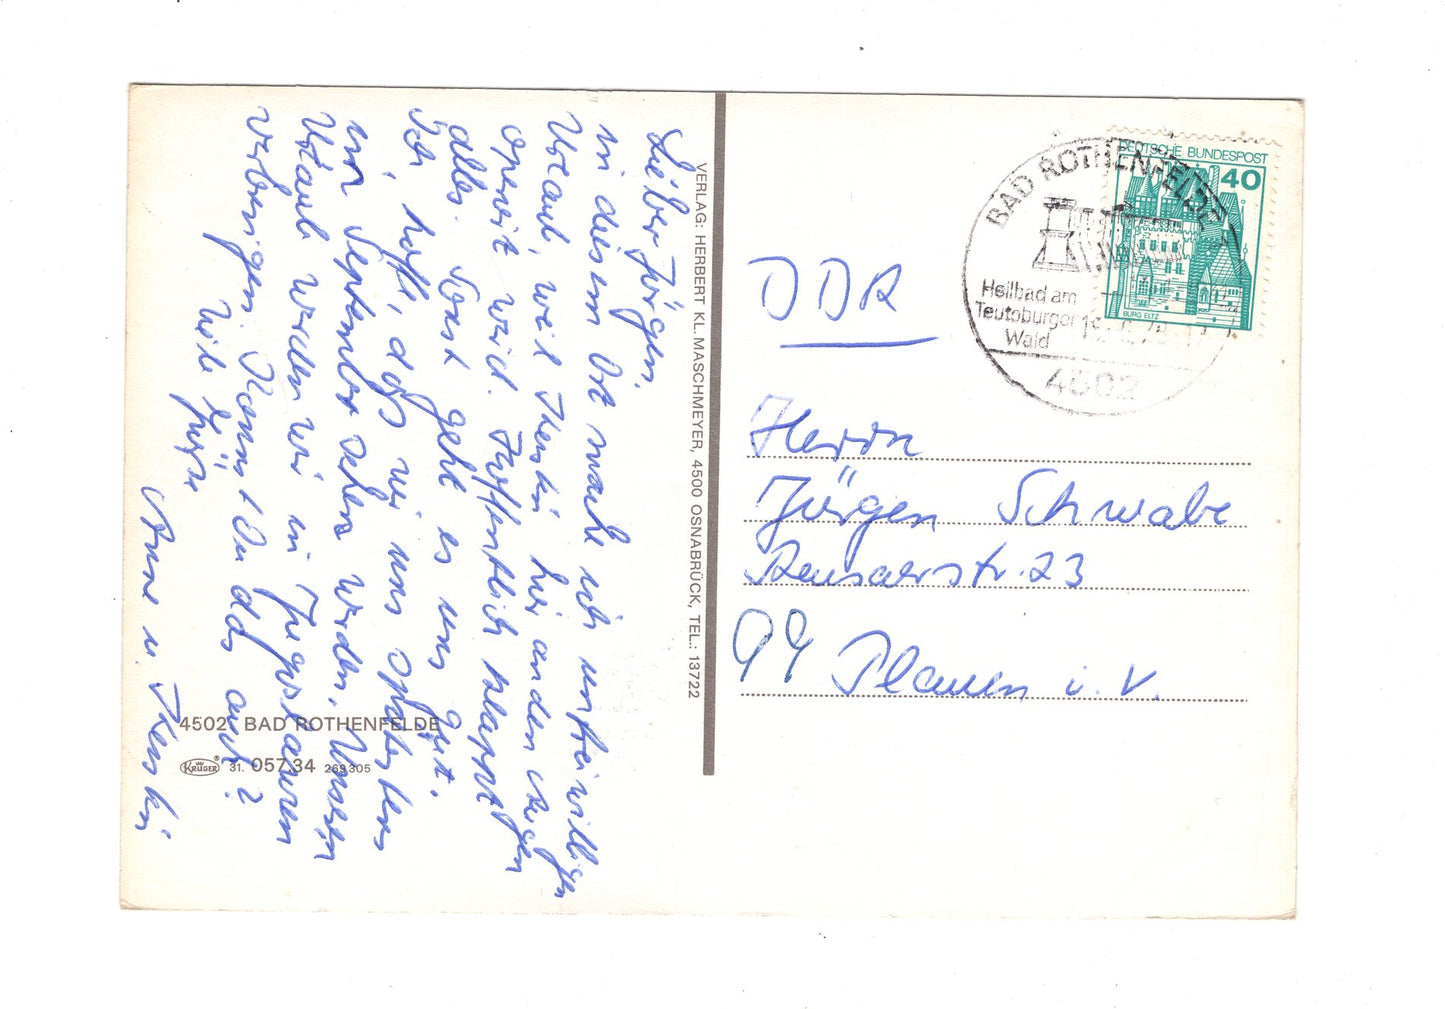 Lieber Jürgen.
in diesem Ort mache ich unfreiwilligen
Urlaub, weil hier an den Augen
operiert wird. Hoffentlich klappt
alles. Sonst geht es uns gut.
Ich hoffe, daß wir uns spätestens
im September sehen werden. Unseren
Urlaub werden wir in Jugoslawien
verbringen. Kannst Du das auch?
Viele Grüße
Anne u.
VERLAG: HERBERT KL. MASCHMEYER, 4500 OSNABRÜCK, TEL.: 13722
4502 BAD ROTHENFELDE
KRÜGER® 31. 057 34 269305
DEUTSCHE BUNDESPOST
40
BURG ELTZ
BAD ROTHENFELDE
Heilbad am
Teutoburger
Wald
4502
DDR
Herrn
Jürgen Schwabe
23
99 Plauen i. V.